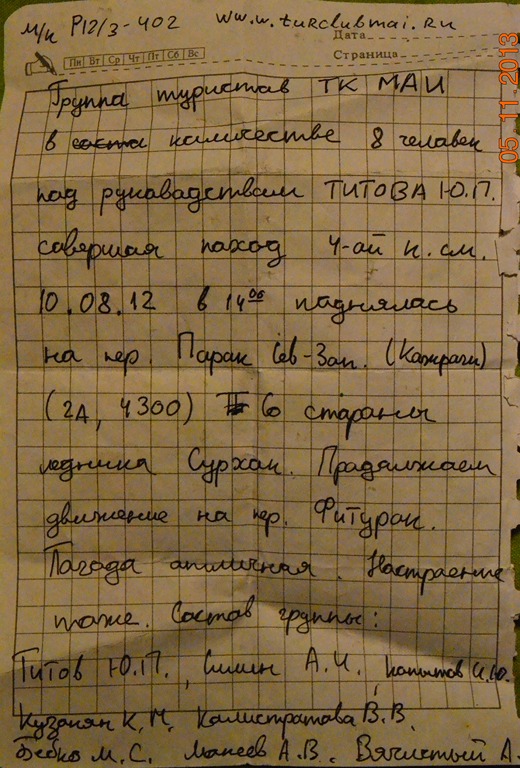 м/к Р12/3-402 www.turclubmai.ru
Дата
Пн Вт Ср Чт Пт Сб Вс
Страница
05 11 2013
Группа туристов ТК МАИ
в соста количестве 8 человек
под руководством ТИТОВА Ю.П.
совершая поход 4-ой к.сл.
10.08.12 в 14 00 поднялась
на пер. Парак Сев-Зап. (Кафраги)
(2А, 4300) Со стороны
ледника Сурхок. Продолжаем
движение на пер. Фитурак.
Погода отличная. Настроение
тоже. Состав группы:
Титов Ю.П., Силин А.И., Копытов И.Ю.
Кузанян К.М. Калистратова В.В.
Бебко М.С. Макеев А.В. Вячистый А.